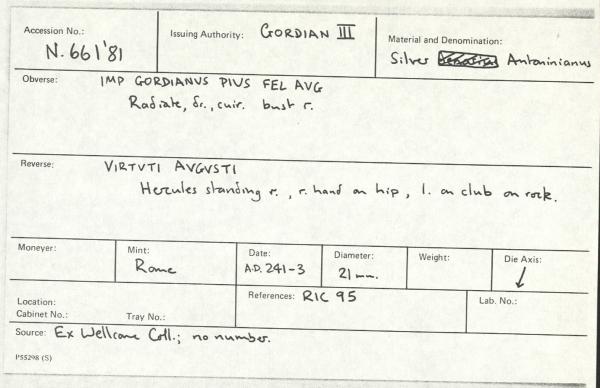 Accession No.: Issuing Authority: GORDIAN III Material and Denomination:
N. 661'81 Silver Antoninianus
Obverse: IMP GORDIANVS PIVS FEL AVG
Radiate, dr., cuir. bust r.
Reverse: VIRTVTI AVGVSTI
Hercules standing r., r. hand on hip, l. on club on rock.
Moneyer: Mint: Date: Diameter: Weight: Die Axis:
Rome A.D. 241-3 21 mm. ↓
Location: References: RIC 95 Lab. No.:
Cabinet No.: Tray No.:
Source: Ex Wellcome Coll.; no number.
P55298 (S)